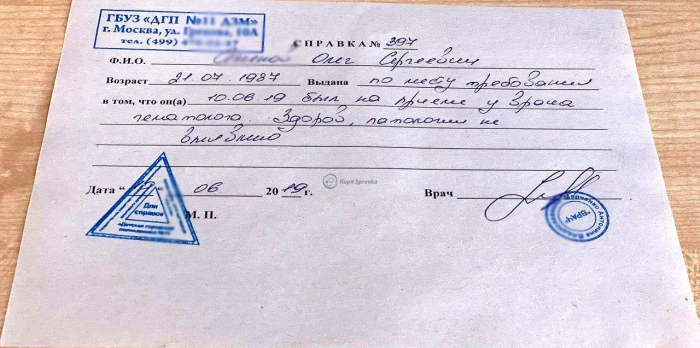 ГБУЗ «ДГП №11 ДЗМ»
г. Москва, ул. 10А
тел. (499)
СПРАВКА № 397
Ф.И.О. Олег Сергеевич
Возраст 21.07.1987 Выдана по месту требования
в том, что он(а) 10.06.19 был на приеме у врача
гематолога. Здоров, патологии не
выявлено
Kupit Spravka
Дата “ ” 06 2019 г. Врач
Для
справок
М. П.
"ВРАЧ"
Антонина